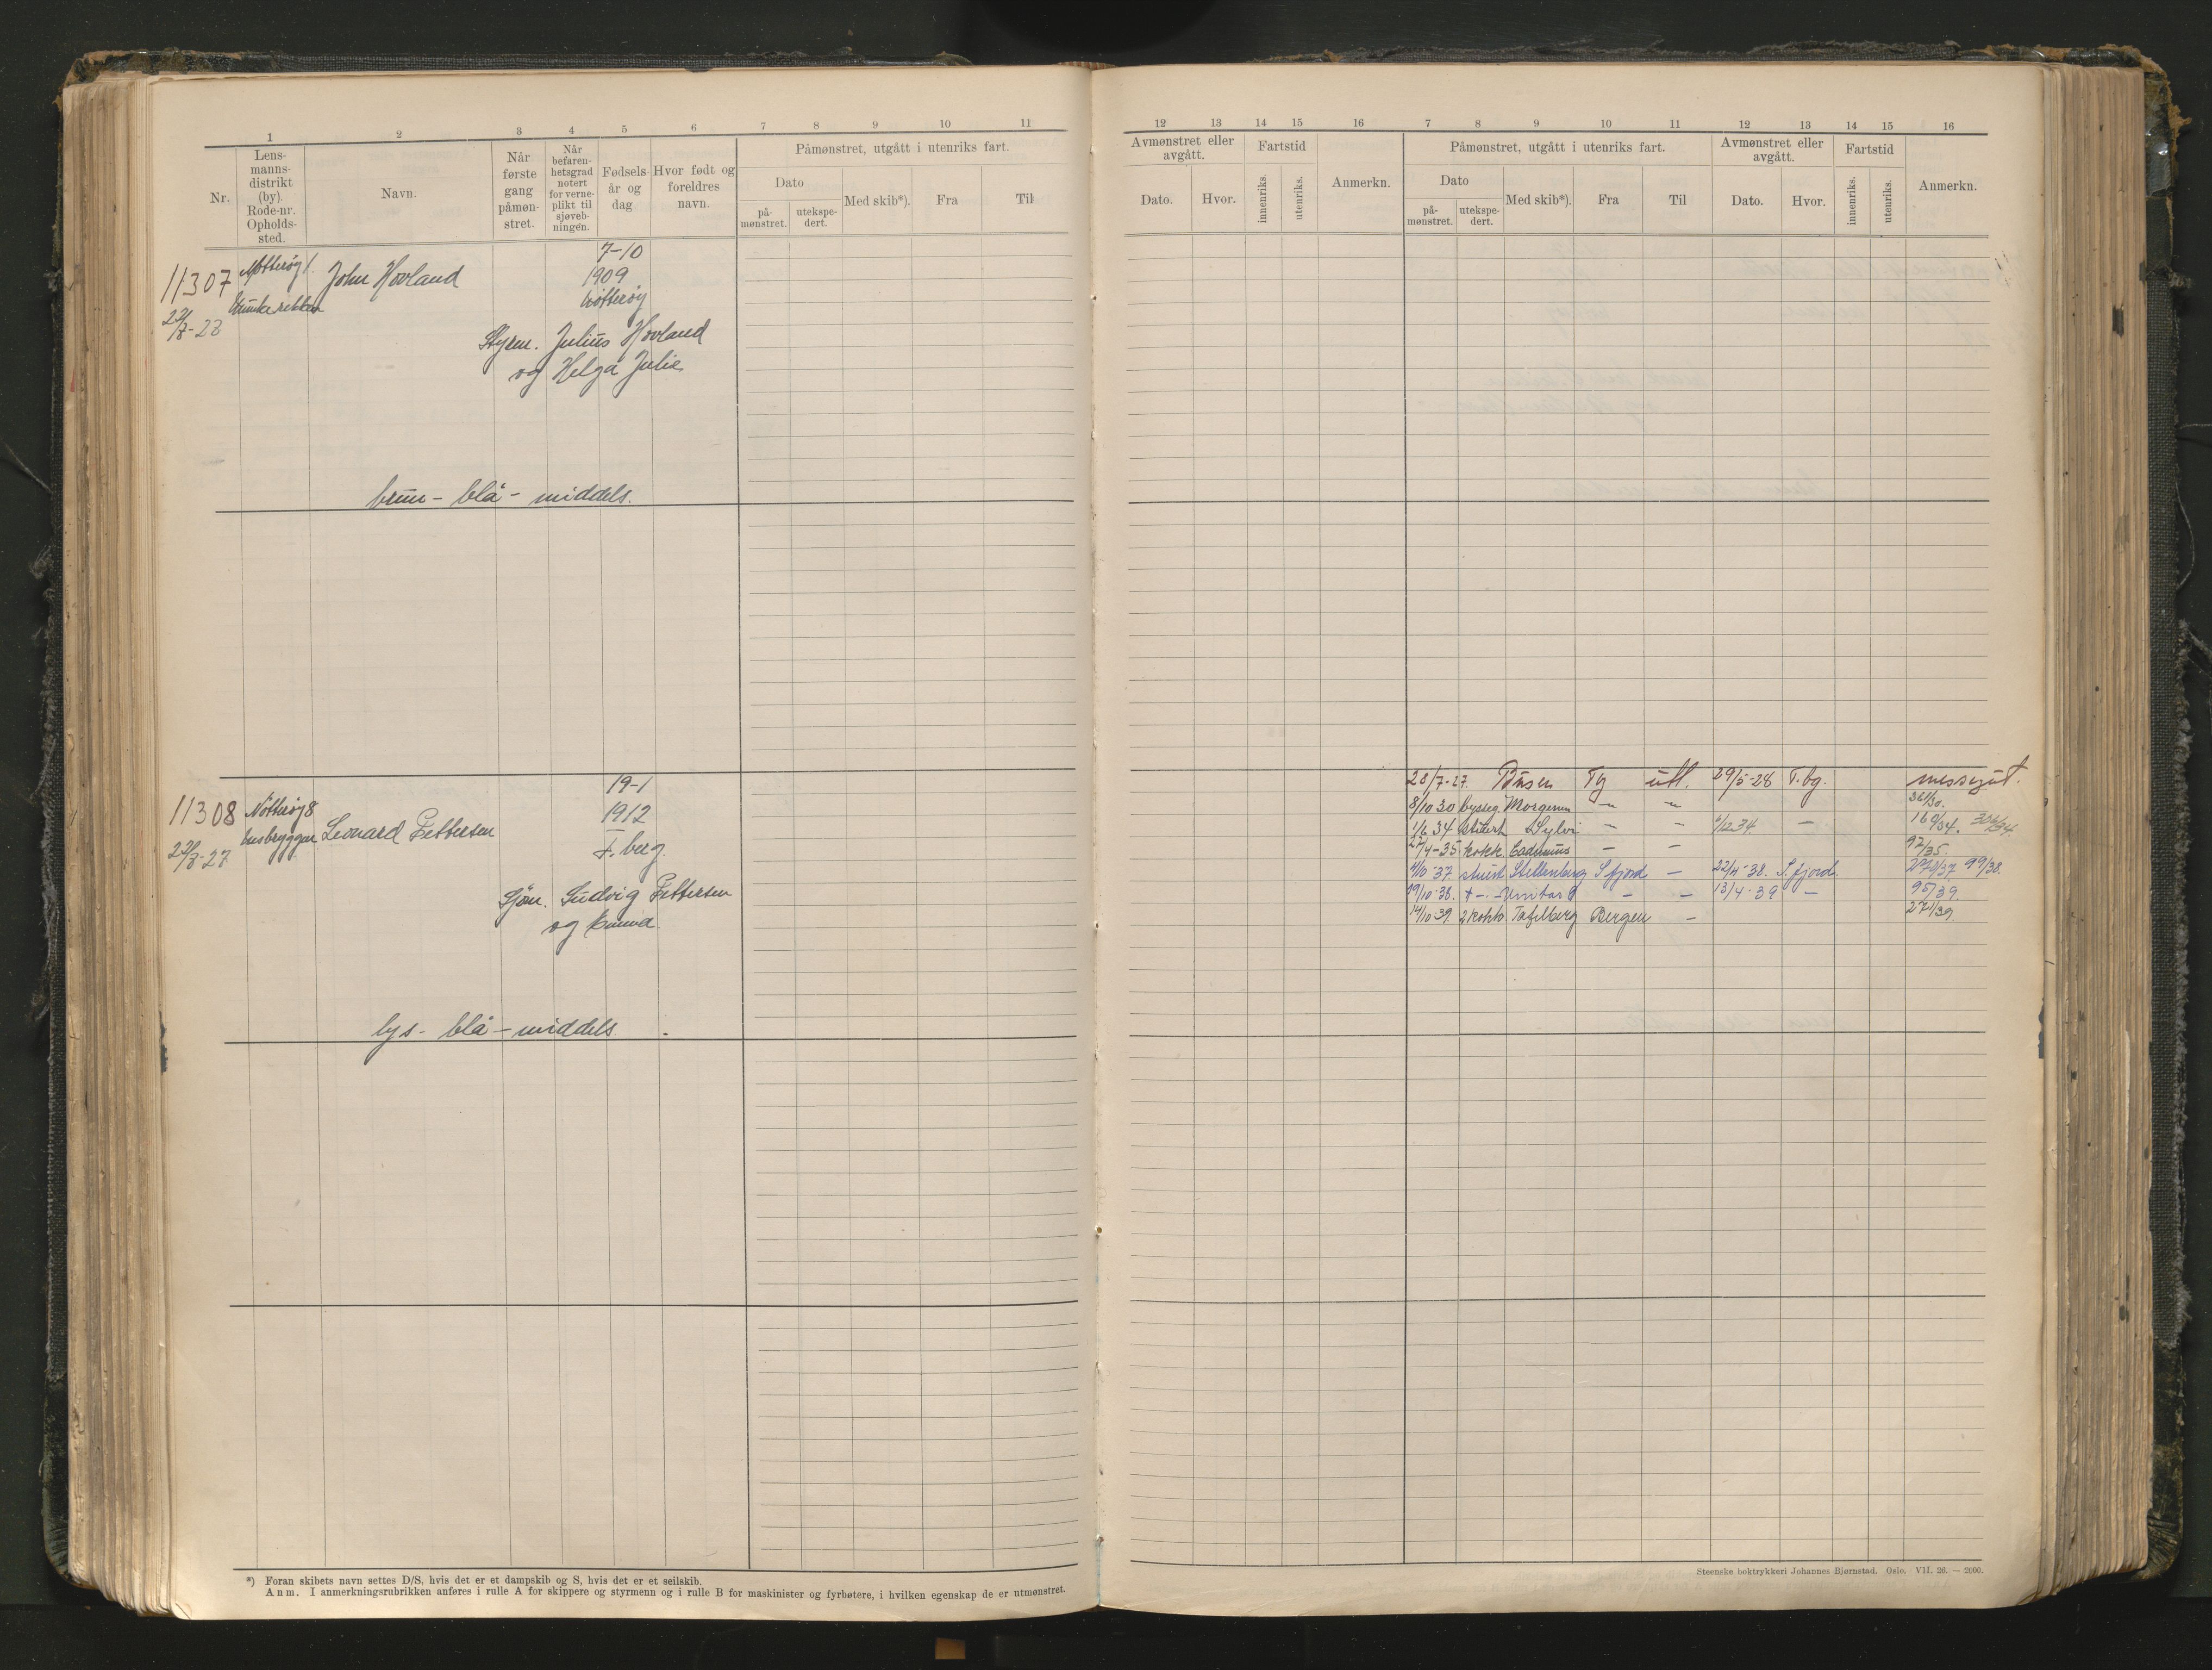 1 2 3 4 5 6 7 8 9 10 11
Nr.
Lens-
manns-
distrikt
(by).
Rode-nr.
Opholds-
sted.
Navn.
Når
første
gang
påmøn-
stret.
Når
befaren-
hetsgrad
notert
for verne-
plikt til
sjøveb-
ningen.
Fødsels-
år og
dag
Hvor født og
foreldres
navn.
Påmønstret, utgått i utenriks fart.
Dato
på-
mønstret.
utekspe-
dert.
Med skib*).
Fra
Til
11307
Nøtterøy 1.
John Hovland
7-10
1909
Nøtterøy
Styrm. Julius Hovland
og Helga Julie
brun - blå - middels.
11308
Nøtterøy 8
Leonard Pettersen
19-1
1912
T.berg.
Sjøm. Ludvig Pettersen
og
lys - blå - middels
*) Foran skibets navn settes D/S, hvis det er et dampskib og S, hvis det er et seilskib.
Anm. I anmerkningsrubrikken anføres i rulle A for skippere og styrmenn og i rulle B for maskinister og fyrbøtere, i hvilken egenskap de er utmønstret.
12 13 14 15 16 7 8 9 10 11 12 13 14 15 16
Avmønstret eller
avgått.
Dato.
Hvor.
Fartstid
innenriks.
utenriks.
Anmerkn.
Påmønstret, utgått i utenriks fart.
Dato
på-
mønstret.
utekspe-
dert.
Med skib*).
Fra
Til
Avmønstret eller
avgått.
Dato.
Hvor.
Fartstid
innenriks.
utenriks.
Anmerkn.
28/7-27. Busen Tg utl. 29/5-28 T.bg. messegut.
8/10 30 bysseg. Morgenen — — 361/30.
1/6 34 stuert Sylvi — — 1/12 34 — 160/34.
27/4-35. kokk — — 92/35.
37. stuert Stellenberg S fjord — 22/4-38. S.fjord. 99/38.
19/10-38. — — 13/4-39 — 95/39
14/10 39. 2 kokk Tafelberg Bergen — 271/39
Steenske boktrykkeri Johannes Bjørnstad. Oslo. VII. 26. — 2000.